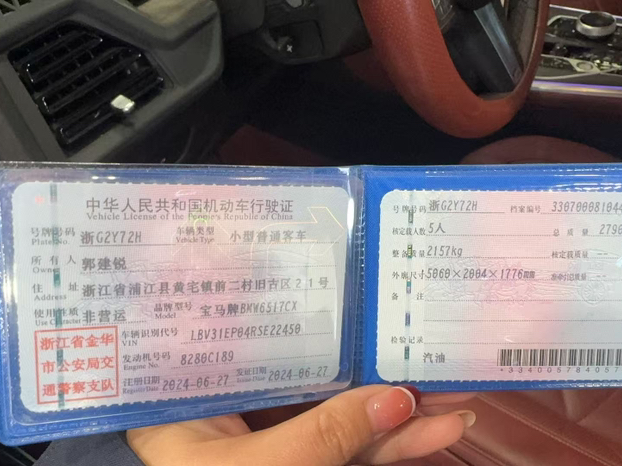 中华人民共和国机动车行驶证
Vehicle License of the People's Republic of China
号牌号码 浙G2Y72H 车辆类型 小型普通客车
Plate No. Vehicle Type
所有人 郭建锐
Owner
住址 浙江省浦江县黄宅镇前二村旧古区21号
Address
使用性质 非营运 品牌型号 宝马牌BMW6517CX
Use Character Model
浙江省金华
市公安局交
通警察支队
车辆识别代号 LBV31EP04RSE22450
VIN
发动机号码 8280C189
Engine No.
注册日期 2024-06-27 发证日期 2024-06-27
Register Date Issue Date
号牌号码 浙G2Y72H 档案编号 330700081044
核定载人数 5人 总质量 2790
整备质量 2157kg 核定载质量 --
外廓尺寸 5060×2004×1776 --
备注
检验记录
汽油